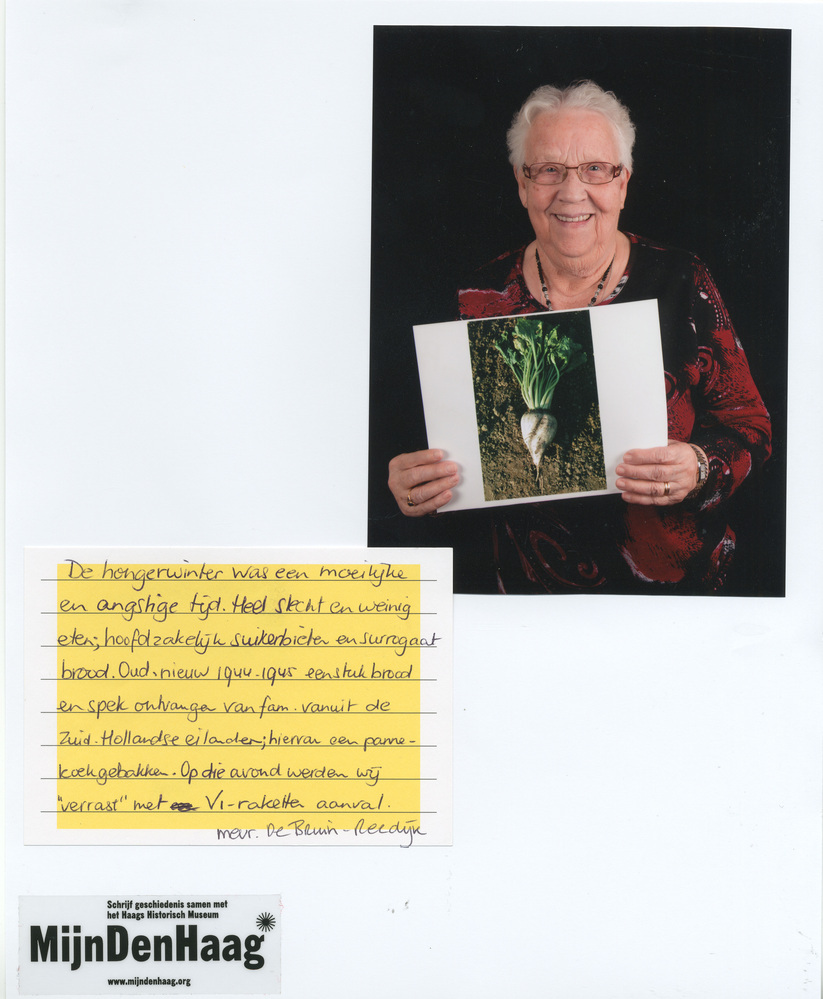 De hongerwinter was een moeilijke
en angstige tijd. Heel slecht en weinig
eten; hoofdzakelijk suikerbieten en surrogaat
brood. Oud.nieuw 1944-1945 een stuk brood
en spek ontvangen van fam. vanuit de
Zuid-Hollandse eilanden; hiervan een panne-
koek gebakken. Op die avond werden wij
"verrast" met V1-raketten aanval.
mevr. De Bruin-Reedijk
Schrijf geschiedenis samen met
het Haags Historisch Museum
MijnDenHaag
www.mijndenhaag.org